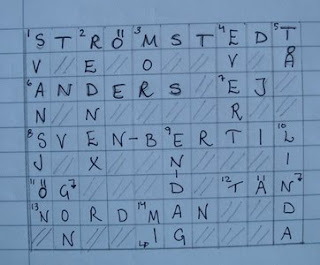 1 S T 2 R Ö 3 M S T 4 E D 5 T
V E O V Å
6 A N D E R S 7 E J
N N R
8 S V E N - B 9 E R T I 10 L
J X N I
11 Ö G D 12 T Ä N
13 N O R D 14 M A N D
N I G A